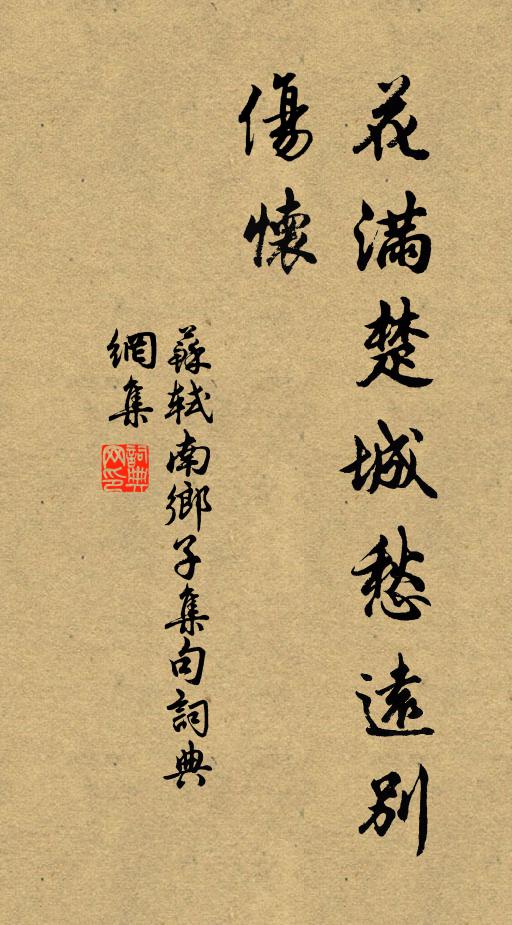 花滿楚城愁遠別
傷懷
蘇軾南鄉子集句詞典
網集
詞典
网印